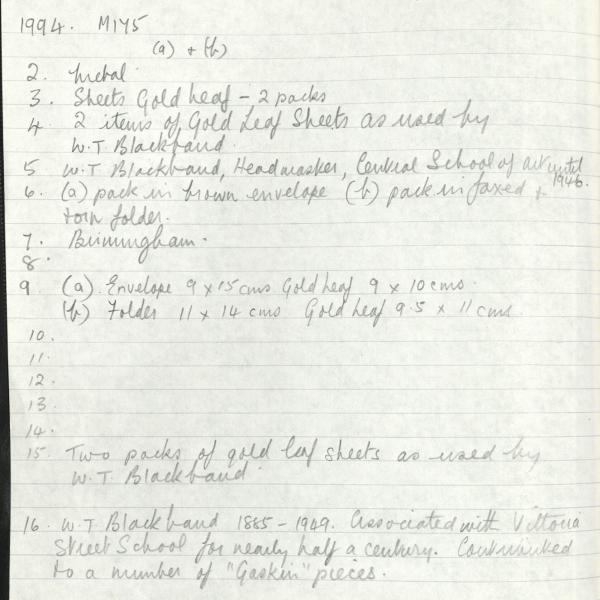 1994. M175
(a) + (b)
2. Metal.
3. Sheets Gold Leaf - 2 packs
4 2 items of Gold Leaf Sheets as used by
W.T Blackband.
5 W.T Blackband, Headmaster, Central School of Art until
1946.
6. (a) pack in brown envelope (b) pack in foxed +
torn folder.
7. Birmingham.
8.
9 (a). Envelope 9 x 15 cms Gold leaf 9 x 10 cms.
(b) Folder 11 x 14 cms Gold leaf 9.5 x 11 cms.
10.
11.
12.
13.
14.
15. Two packs of gold leaf sheets as used by
W.T. Blackband.
16. W.T Blackband 1885 - 1949. Associated with Vittoria
Street School for nearly half a century. Contributed
to a number of "Gaskin" pieces.